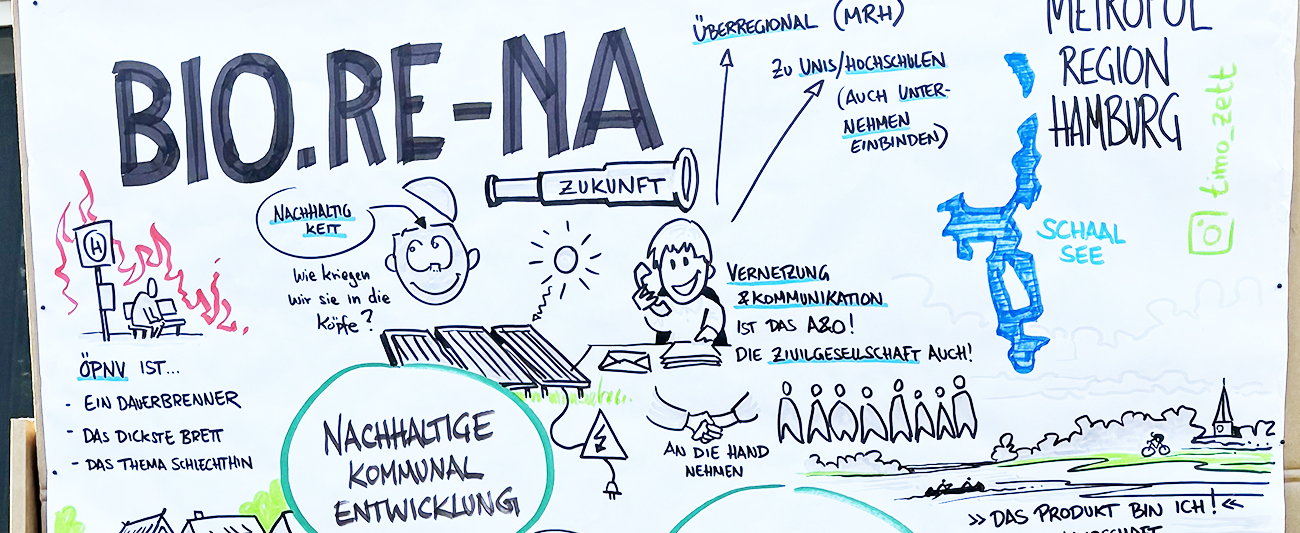 BIO.RE-NA
ÜBERREGIONAL (MRH)
ZU UNIS/HOCHSCHULEN
(AUCH UNTER-
NEHMEN
EINBINDEN)
METROPOL
REGION
HAMBURG
timo_zett
SCHAAL
SEE
ZUKUNFT
NACHHALTIG
KEIT
Wie kriegen
wir sie in die
Köpfe?
H
VERNETZUNG
&KOMMUNIKATION
IST DAS A&O!
DIE ZIVILGESELLSCHAFT AUCH!
ÖPNV IST...
- EIN DAUERBRENNER
- DAS DICKSTE BRETT
- DAS THEMA SCHLECHTHIN
NACHHALTIGE
KOMMUNAL
ENTWICKLUNG
AN DIE HAND
NEHMEN
»DAS PRODUKT BIN ICH!«